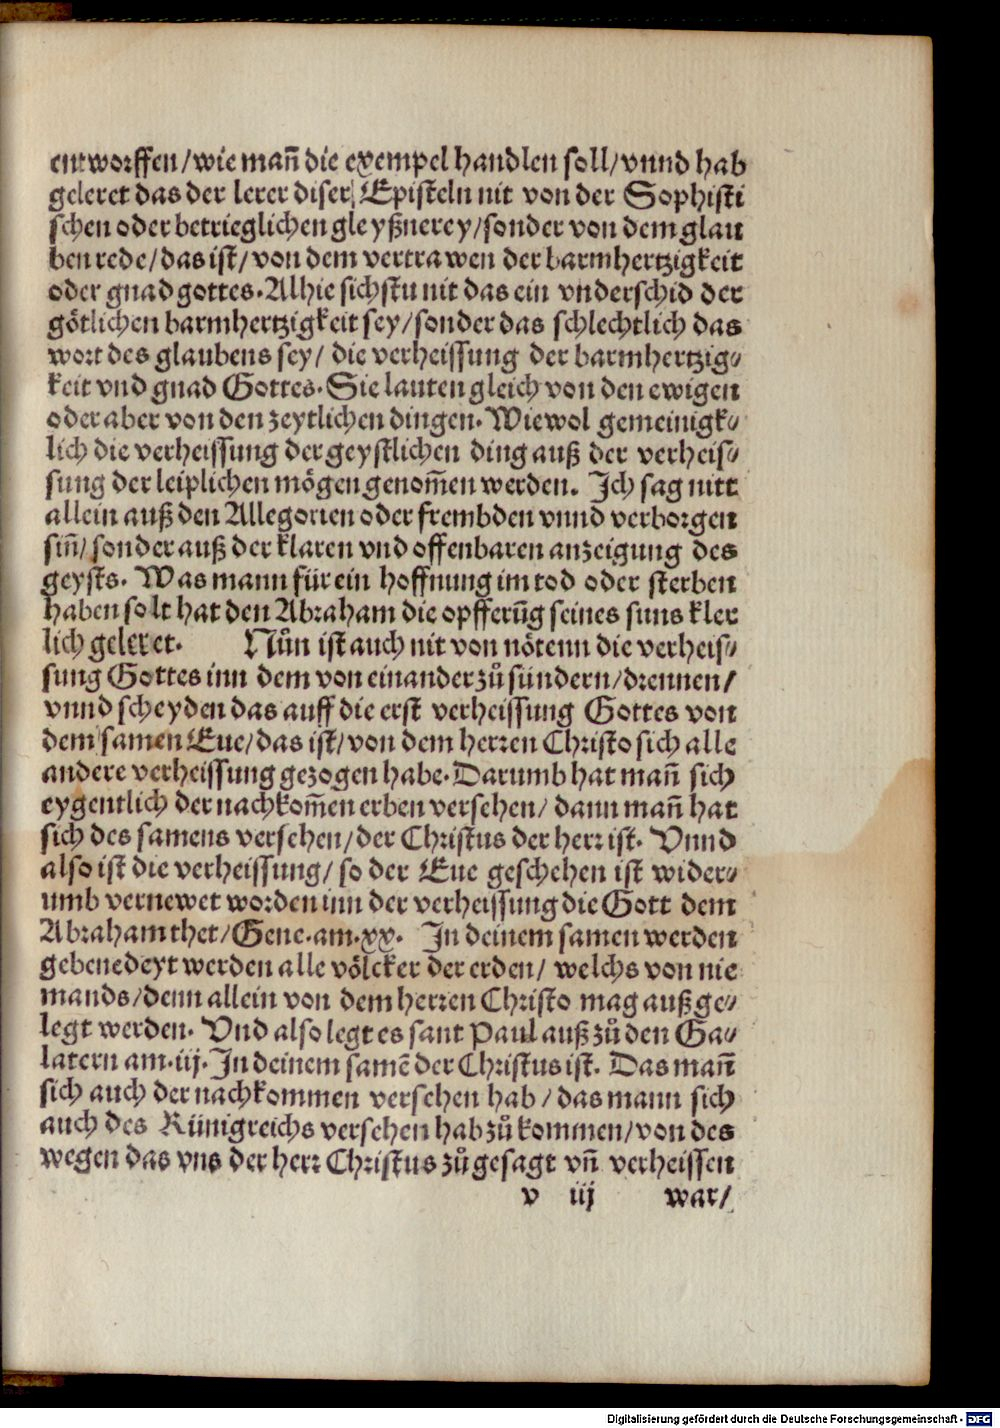 entworffen/wie mañ die exempel handlen soll/vnnd hab
geleret das der lerer diser Episteln nit von der Sophisti
schen oder betrieglichen gleyßnerey/sonder von dem glau
ben rede/das ist/von dem vertrawen der barmhertzigkeit
oder gnad gottes. Alhie sichstu nit das ein vnderschid der
götlichen barmhertzigkeit sey/sonder das schlechtlich das
wort des glaubens sey/ die verheissung der barmhertzig⸗
keit vnd gnad Gottes. Sie lauten gleich von den ewigen
oder aber von den zeytlichen dingen. Wiewol gemeinigk⸗
lich die verheissung der geystlichen ding auß der verheis⸗
sung der leiplichen mögen genom̃en werden. Ich sag nitt
allein auß den Allegorien oder frembden vnnd verborgen
siñ/sonder auß der klaren vnd offenbaren anzeigung des
geysts. Was mann für ein hoffnung im tod oder sterben
haben solt hat den Abraham die opfferũg seines suns kler
lich geleret. Nůn ist auch nit von nötenn die verheis⸗
sung Gottes inn dem von einander zů sündern/drennen/
vnnd scheyden das auff die erst verheissung Gottes von
dem samen Eue/das ist/von dem herren Christo sich alle
andere verheissung gezogen habe. Darumb hat mañ sich
eygentlich der nachkom̃en erben versehen/ dann mañ hat
sich des samens versehen/der Christus der herr ist. Vnnd
also ist die verheissung/ so der Eue geschehen ist wider⸗
umb vernewet worden inn der verheissung die Gott dem
Abraham thet/Gene.am.xx. In deinem samen werden
gebenedeyt werden alle völcker der erden/ welchs von nie
mands/denn allein von dem herren Christo mag auß ge⸗
legt werden. Vnd also legt es sant Paul auß zů den Ga⸗
latern am.iij. In deinem samẽ der Christus ist. Das mañ
sich auch der nachkommen versehen hab/das mann sich
auch des Künigreichs versehen hab zů kommen/von des
wegen das vns der herr Christus zů gesagt vñ verheissen
v iij war/
Digitalisierung gefördert durch die Deutsche Forschungsgemeinschaft - DFG